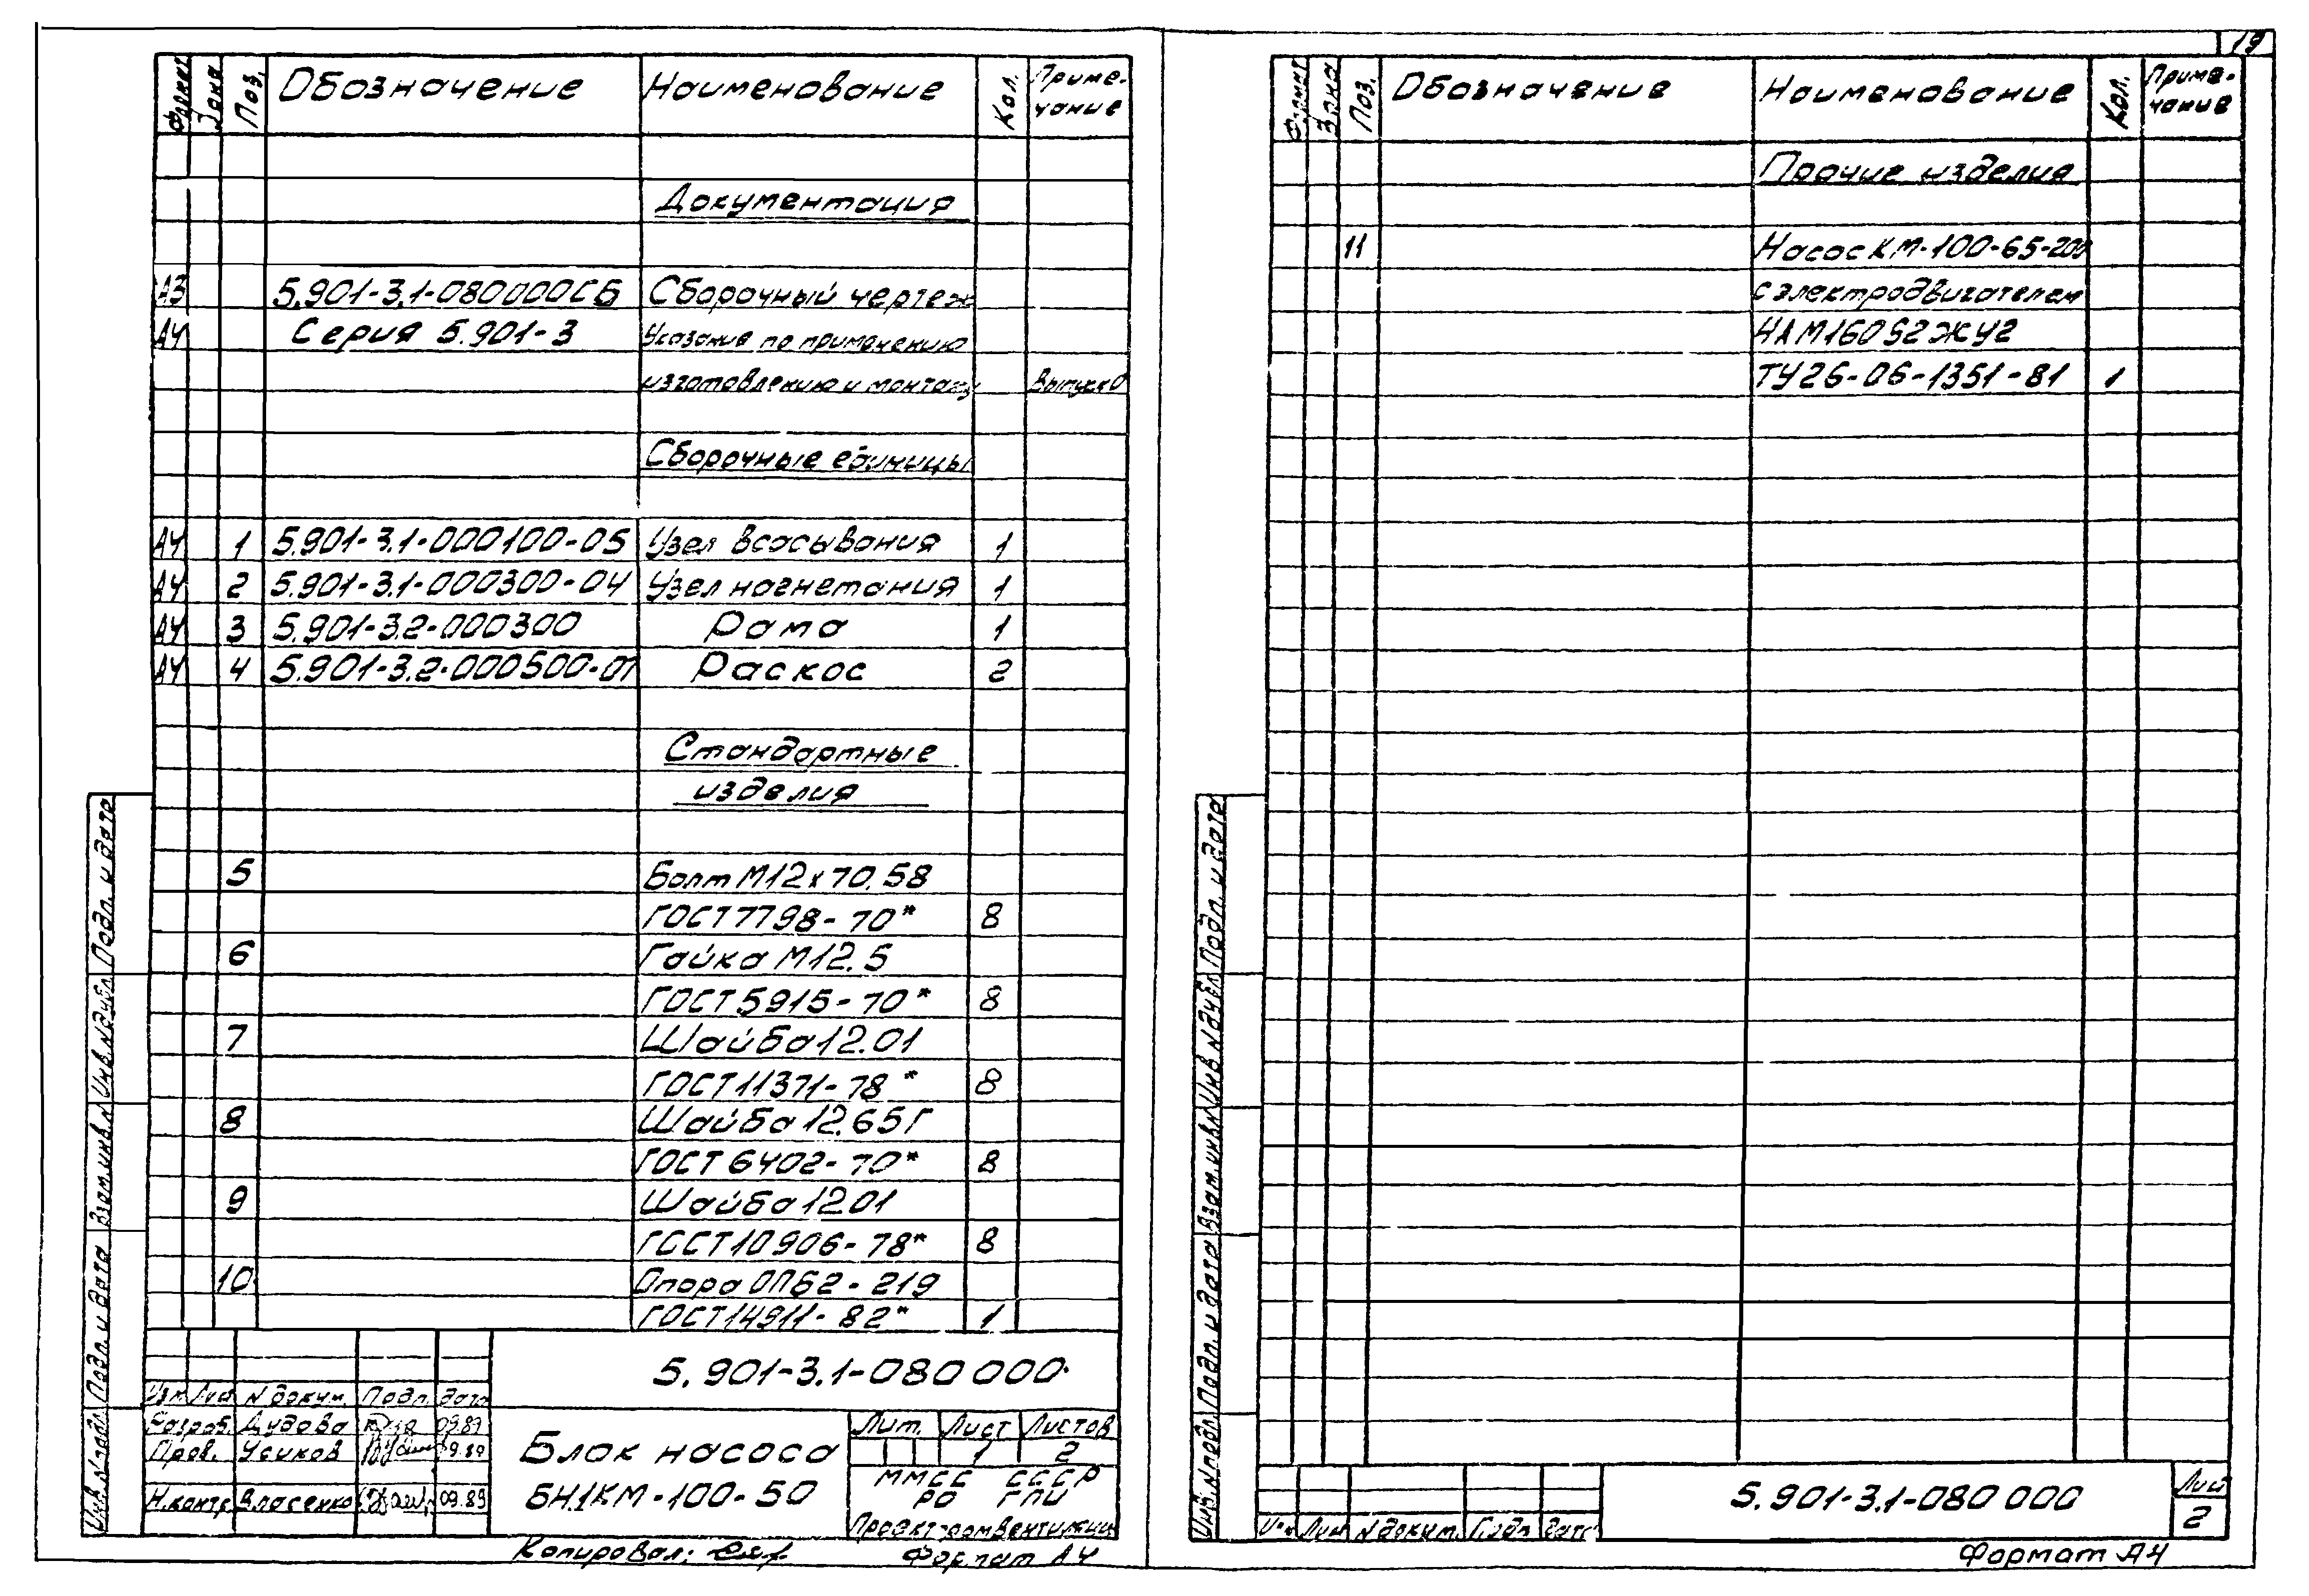 19
Формат Зона Поз. Обозначение Наименование Кол. Приме-
чание
Документация
А3 5.901-3.1-080000СБ Сборочный чертеж
А4 Серия 5.901-3 Указание по применению
изготовлению и монтажу Выпуск 0
Сборочные единицы
А4 1 5.901-3.1-000100-05 Узел всасывания 1
А4 2 5.901-3.1-000300-04 Узел нагнетания 1
А4 3 5.901-3.2-000300 Рама 1
А4 4 5.901-3.2-000500-01 Раскос 2
Стандартные
изделия
5 Болт М12х70.58
ГОСТ 7798-70* 8
6 Гайка М12.5
ГОСТ 5915-70* 8
7 Шайба 12.01
ГОСТ 11371-78* 8
8 Шайба 12.65Г
ГОСТ 6402-70* 8
9 Шайба 1201
ГОСТ 10906-78* 8
10 Опора ОПБ2-219
ГОСТ 14911-82* 1
5.901-3.1-080 000
Изм. Лист N докум. Подп. Дата
Разраб. Дудова 09.89
Пров. Усиков 09.89
Н.контр. Власенко 09.89
Блок насоса
БН1КМ-100-50
Лит. Лист Листов
1 2
ММСС СССР
РО ГПИ
Проектпромвентиляция
Копировал:
Формат А4
Подп. и дата
Инв. N дубл.
Взам. инв. N
Подп. и дата
Инв. N подл.
Формат Зона Поз. Обозначение Наименование Кол. Приме-
чание
Прочие изделия
11 Насос КМ-100-65-200
с электродвигателем
4АМ160S2ЖУ2
ТУ26-06-1351-81 1
Подп. и дата
Инв. N дубл.
Взам. инв. N
Подп. и дата
Инв. N подл.
Изм Лист N докум. Подп. Дата
5.901-3.1-080 000
Лист
2
Формат А4